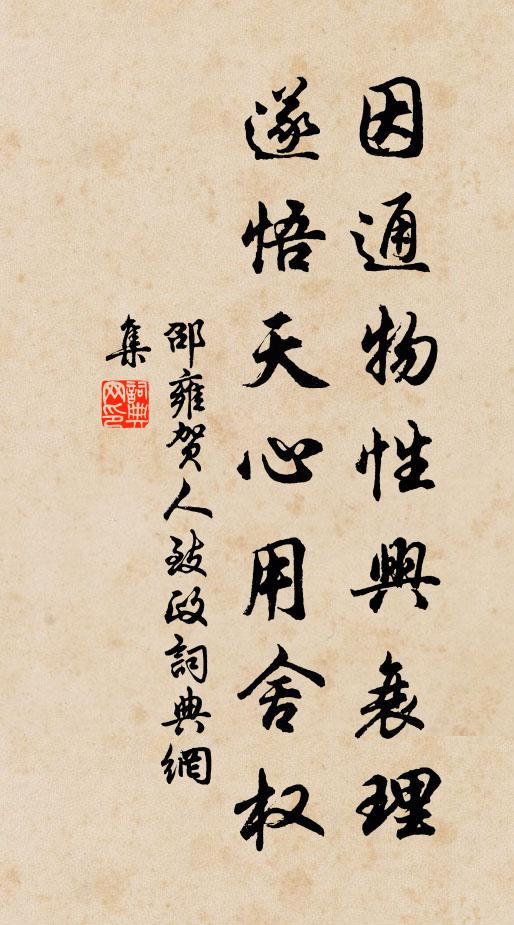 因通物性興衰理
遂悟天心用舍权
邵雍贺人致政詞典網
集
詞典
网印